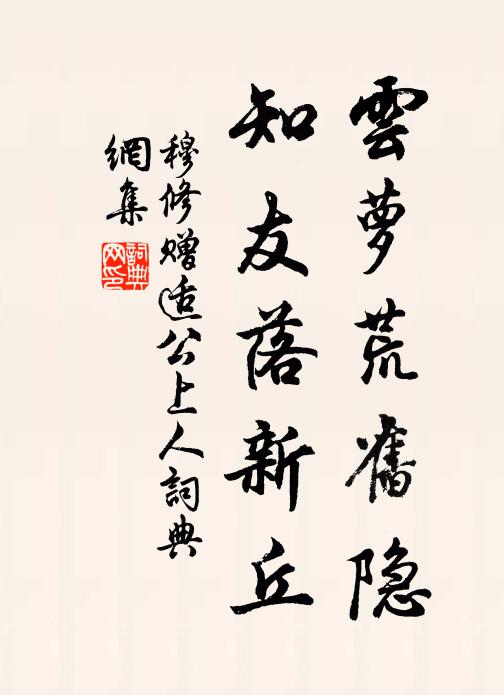 雲萝荒舊隐
知友落新丘
穆修赠适公上人詞典
網集
詞典
网印